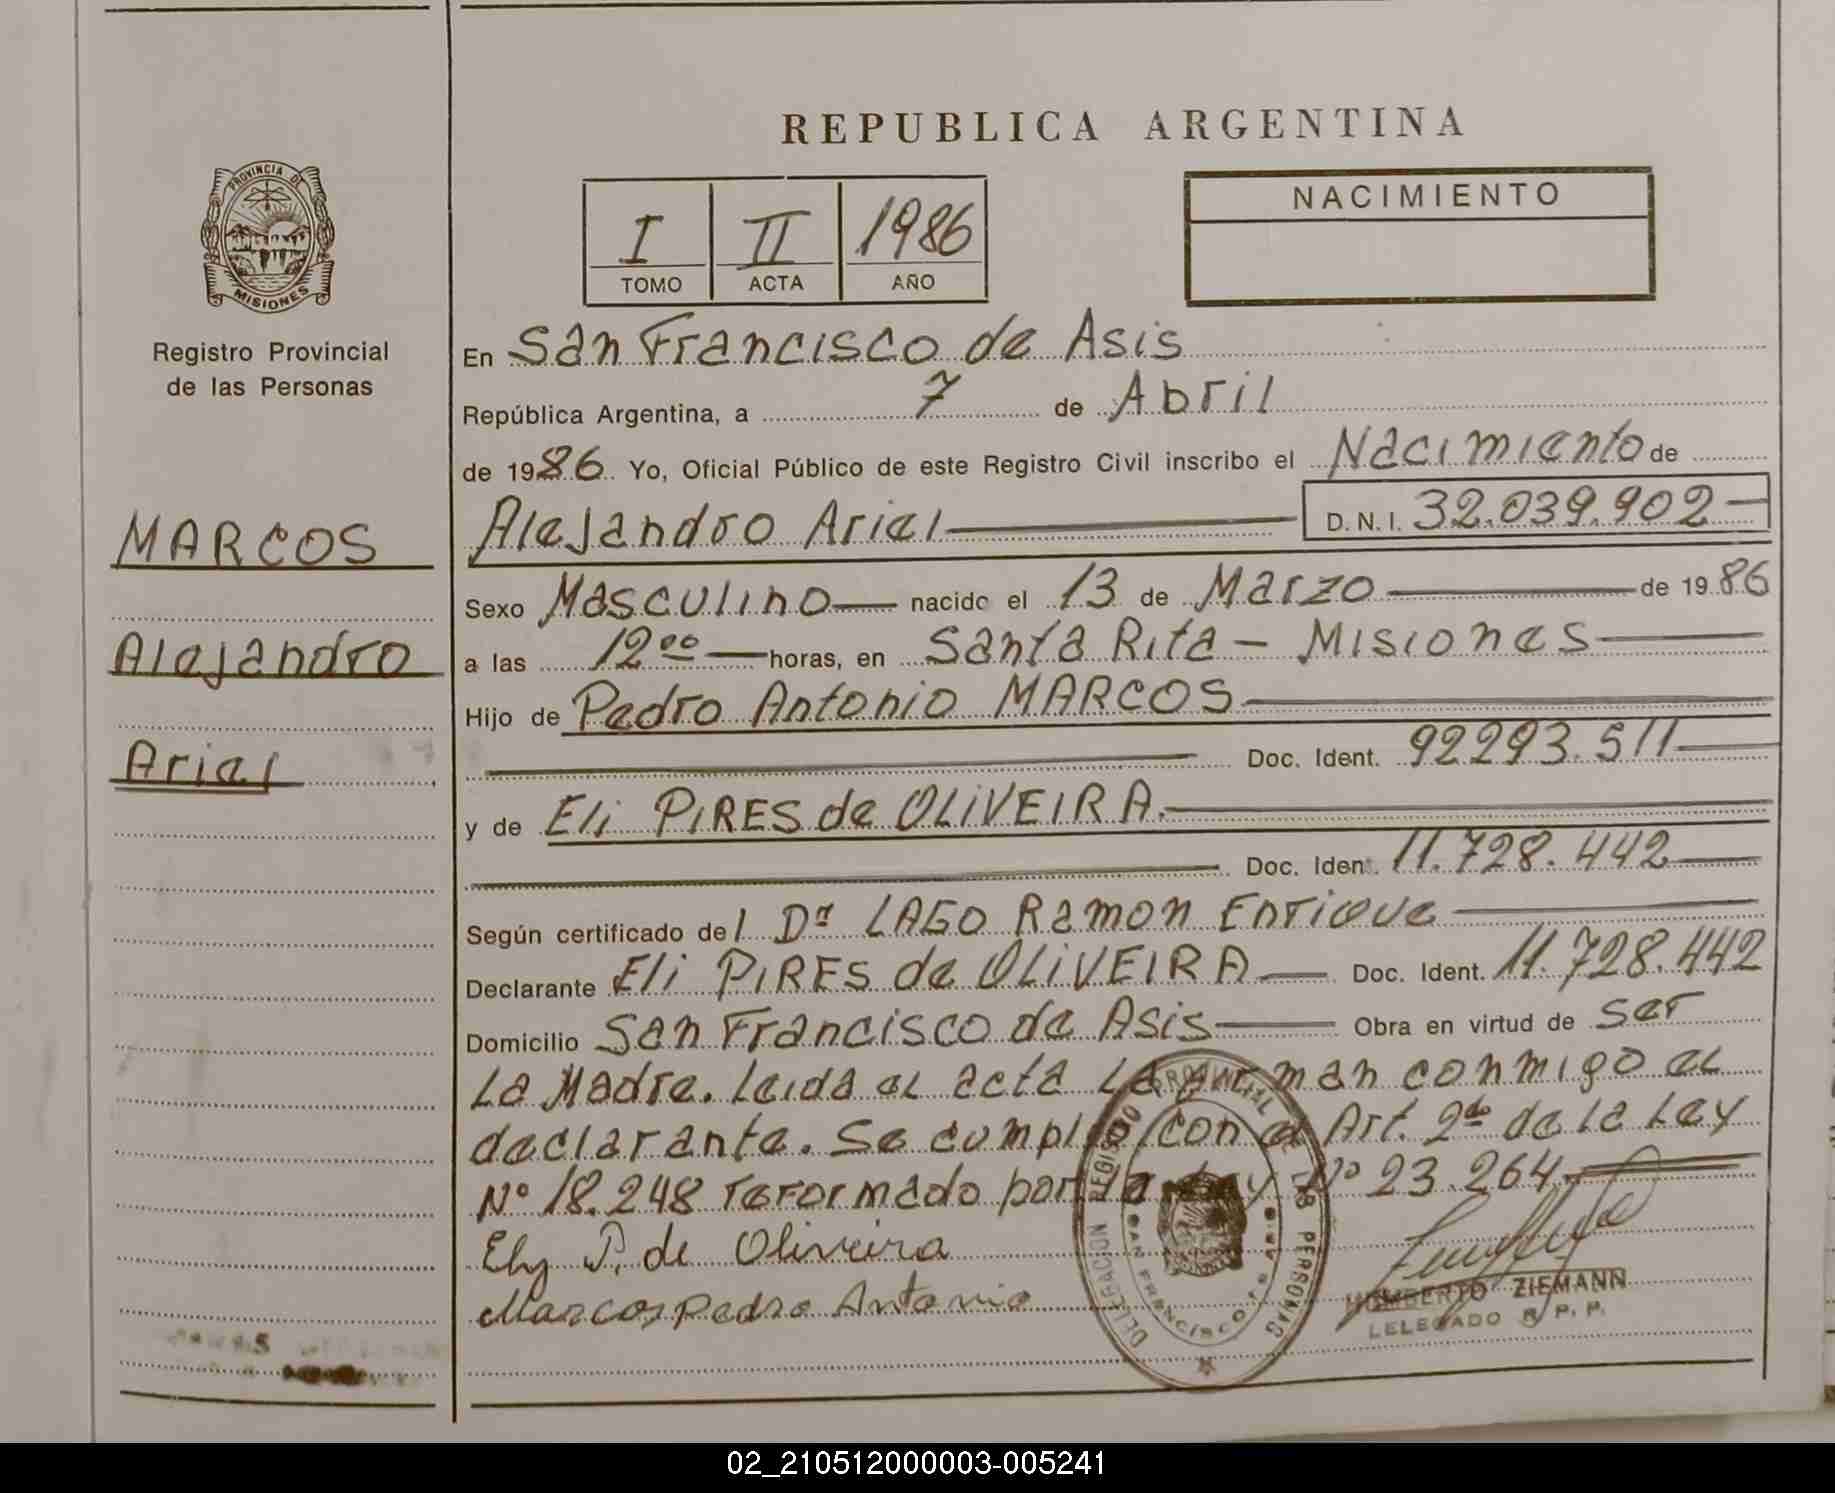 REPUBLICA ARGENTINA
PROVINCIA DE
MISIONES
Registro Provincial
de las Personas
I II 1986
TOMO ACTA AÑO
NACIMIENTO
MARCOS
Alejandro
Ariel
En San Francisco de Asis
República Argentina, a 7 de Abril
de 1986. Yo, Oficial Público de este Registro Civil inscribo el Nacimiento de
Alejandro Ariel — D. N. I. 32.039.902 —
Sexo Masculino — nacido el 13 de Marzo — de 1986
a las 12 00 — horas, en Santa Rita - Misiones —
Hijo de Pedro Antonio MARCOS —
— Doc. Ident. 92293.511 —
y de Eli PIRES de OLIVEIRA. —
— Doc. Ident. 11.728.442 —
Según certificado del Dr LAGO Ramon Enrique —
Declarante Eli PIRES de OLIVEIRA — Doc. Ident. 11.728.442
Domicilio San Francisco de Asis — Obra en virtud de ser
La Madre. Leida el acta La firman conmigo el
declarante. Se cumplio con el Art. 2do de la Ley
Nº 18.248 reformado por la Ley Nº 23.264. —
Ely P. de Oliveira
Marcos Pedro Antonio
DELEGACION REGISTRO PROVINCIAL DE LAS PERSONAS
SAN FRANCISCO DE ASIS
HUMBERTO ZIEMANN
DELEGADO R. P. P.
02_210512000003-005241